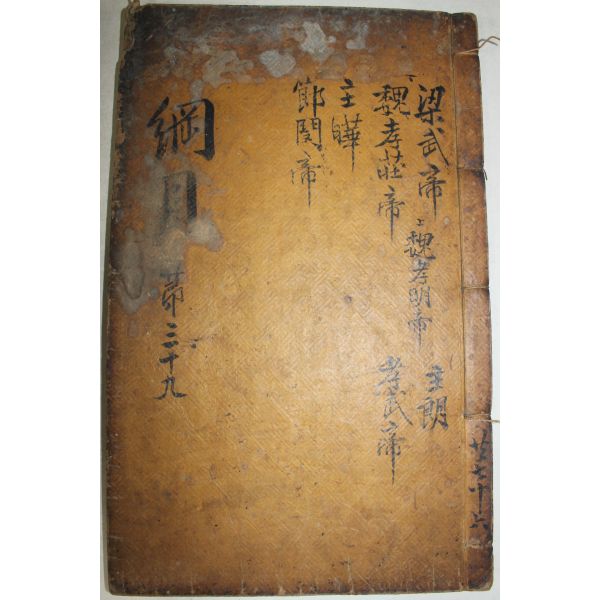 梁武帝
主朗
上魏孝明帝
魏孝莊帝
孝武帝
主曄
節閔帝
綱目 苐三十九
共七十六